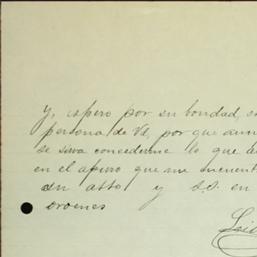 Y, espero por su bondad, 
persona de Vd, por que aun
se sirva concederme lo que
en el apuro que me encuent
un atto y S.S. en
ordenes